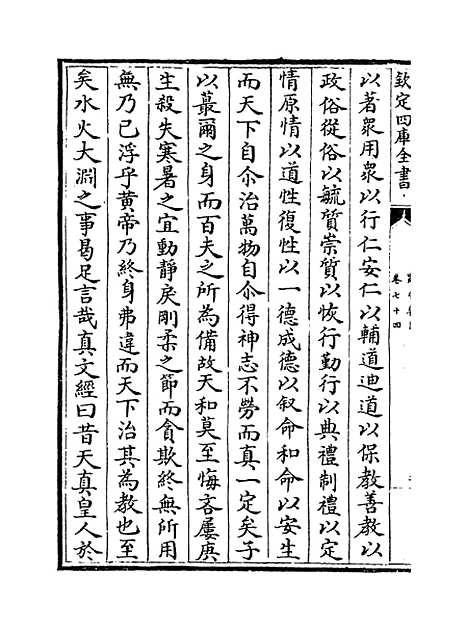 欽定四庫全書
卷七十四
以著衆用衆以行仁安仁以輔道迪道以保教善教以
政俗從俗以毓質崇質以恢行勤行以典禮制禮以定
情原情以道性復性以一德成德以叙命和命以安生
而天下自尒治萬物自尒得神志不勞而真一定矣子
以蕞爾之身而百夫之所為備故天和莫至悔吝屢庚
生殺失寒暑之宜動静戾剛柔之節而貪欺終無所用
無乃已浮乎黄帝乃終身弗違而天下治其為教也至
矣水火大淵之事曷足言哉真文經曰昔天真皇人於